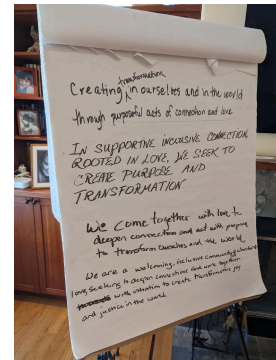 transformation
Creating in ourselves and in the world
through purposeful acts of connection and love
IN SUPPORTIVE INCLUSIVE CONNECTION
ROOTED IN LOVE, WE SEEK TO
CREATE PURPOSE AND
TRANSFORMATION
We come together with love to
deepen connection and act with purpose
to transform ourselves and the world
We are a welcoming, inclusive community
love, seeking to deepen connections and work together
with intention to create transformative joy
and justice in the world.